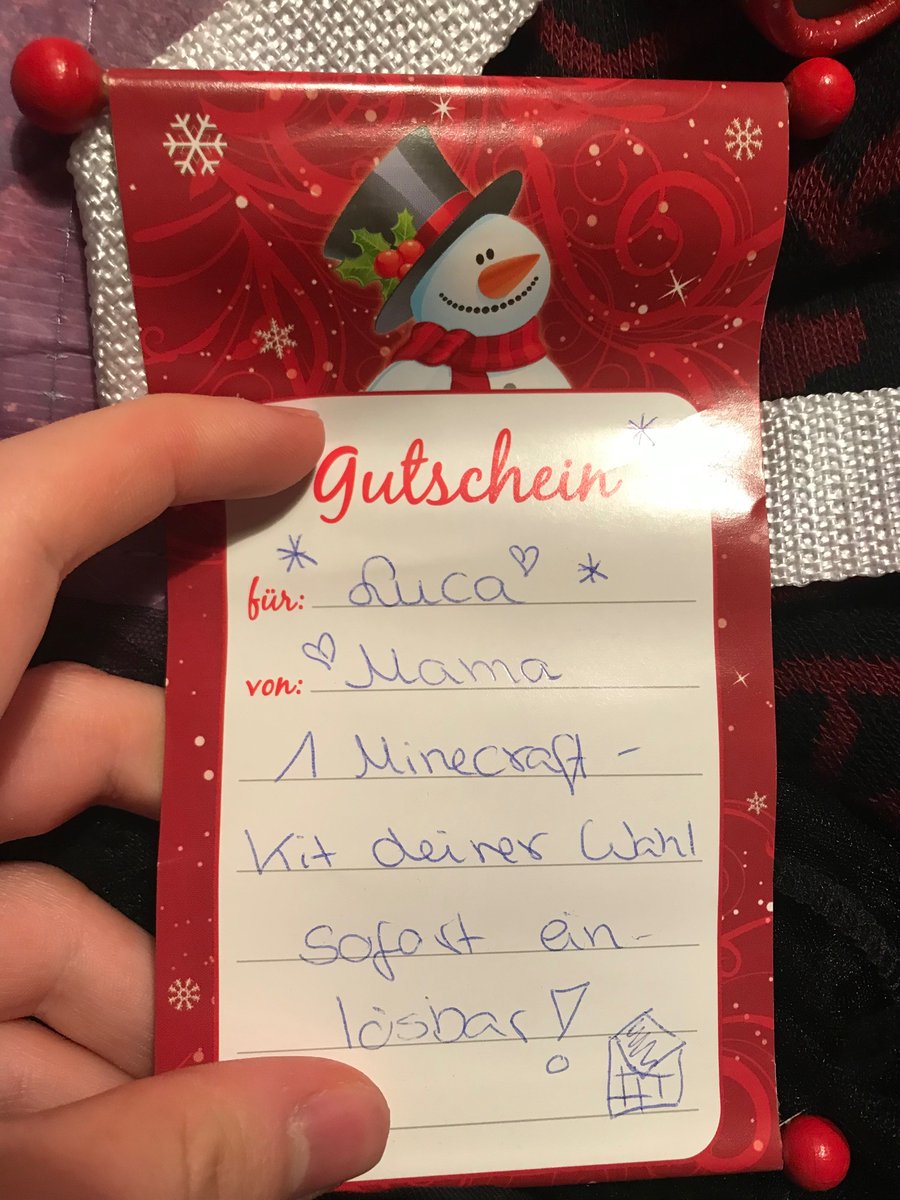 Gutschein
für: Luca
von: Mama
1 Minecraft-
Kit deiner Wahl
sofort ein-
lösbar!